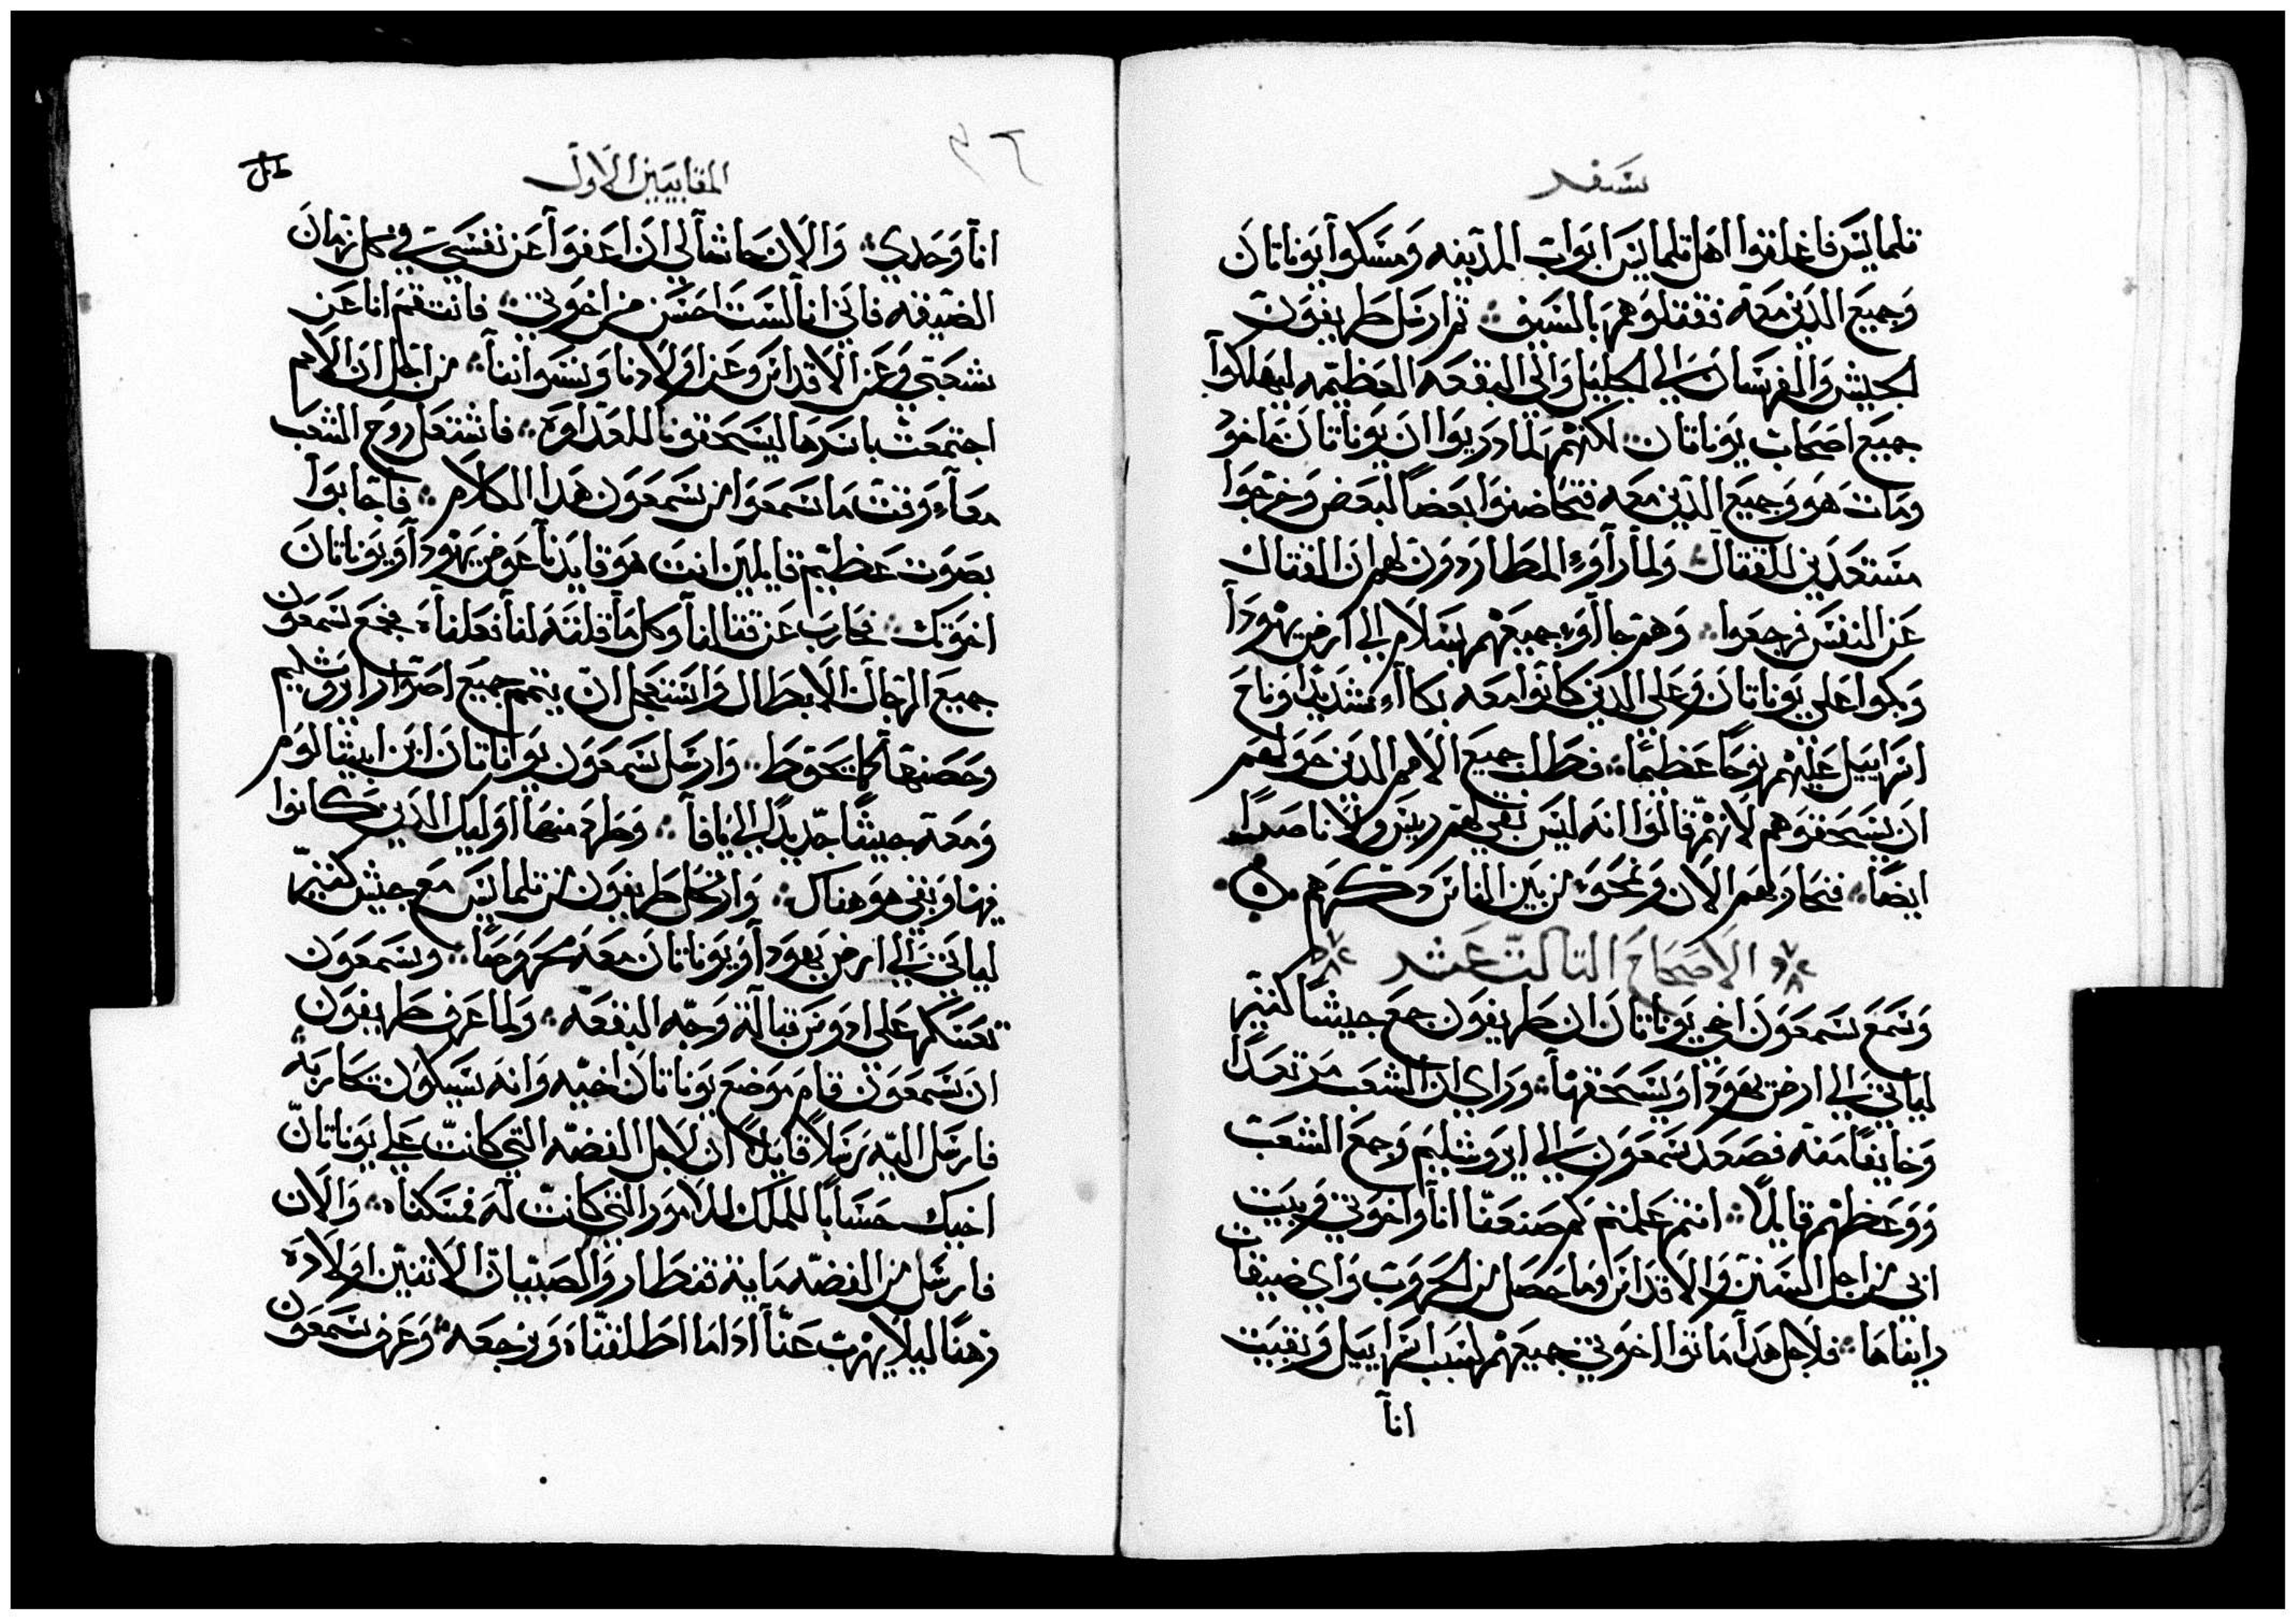 سفر
تلمايس فاغلقوا اهل تلمايس ابواب المدينه ومسكوا يوناتان
وجميع الدين معه فقتلوهم بالسيف ؞ تم ارسل طريفون
الجيش والفرسان الي الجليل والي البقعه العظيمه ليهلكوا
جميع اصحاب يوناتان ؞ لكنهم لما دريوا ان يوناتان ماخود
ومات هو وجميع الدين معه فتحاضنوا بعضا لبعض وخرجوا
مستعدين للقتال ؞ ولما راوو المطاردون لهم ان القتال
عن النفس فرجعوا ؞ وهم جاآوء جميعهم بسلام الي ارض يهودا
وبكوا علي يوناتان وعلي الدين كانوا معه بكاآء شديدا وناح
اسراييل عليهم نوحا عظيما ؞ فطلب جميع الامم الدين حولهم
ان يسحقوهم لانهم قالوا انه ليس بقي لهم رييس ولا ناصدا
ايضا ؞ فنحاربهم الان ونمحو من بين الناس دكرهم ؞
الاصحاح التالت عشر
وسمع سمعون اخي يوناتان ان طريفون جمع جيشا كتير
لياتي الي ارض يهودا ويسحقها ؞ وراي ان الشعب مرتعدا
وخايفا منه فصعد سمعون الي ايروشليم وجمع الشعب
ووعظهم قايلا ؞ انتم علمتم كم صنعنا انا واخوتي وبيت
ابي من اجل السنن والاقداس وما حصل من الحروب واي ضيقات
راينا‌ها ؞ فلاجل هدا ماتوا اخوتي جميعهم لسبب اسراييل وبقيت
انا
المقابيين الاول
انا وحدي ؞ والان حاشا لي ان اعفوا عن نفسي في كل زمان
الضيقه فاني انا لست احسن من اخوتي ؞ فانتقم انا عن
شعبي وعن الاقداس وعن اولادنا ونسواننا ؞ من اجل ان الامم
اجتمعت باسرها ليسحقونا للعداوه ؞ فاشتعل روح الشعب
معآء وقت ما سمعوا من سمعون هدا الكلام ؞ فاجابوا
بصوت عظيم قايلين انت هو قايدنا عوض يهودا ويوناتان
اخوتك ؞ فحارب عن قتالنا وكل ما قلته لنا نعلناه فجمع سمعون
جميع الرجال الابطال واستعجل ان يتمم جميع اصوار ايروشليم
وحصنها كما يحوط ؞ وارسل سمعون يواناتان ابن ابيشالوم
ومعه جيشا جديدا الي يافا ؞ وطرد منها اوليك الدين كانوا
فيها وبقي هو هناك ؞ وارتحل طريفون من تلمايس مع جيش كتير
لياتي الي ارض يهودا ويوناتان معه محروصا ؞ وسمعون
تعسكر علي ادوس قبالة وجه البقعه ؞ ولما عرف طريفون
ان سمعون قام موضع يوناتان اخيه وانه سيكون تحاربه
فارسل اليه رسلا قايلا ان لاجل الفضه التي كانت علي يوناتان
اخيك حسابا للملك للامور التي كانت له فمسكناه ؞ والان
فارسل من الفضه ماية قنطار والصبيان الاتنين اولاده
رهنا ليلا يهرب عنا ادا ما اطلقناه ونرجعه ؞ وعرف سمعون